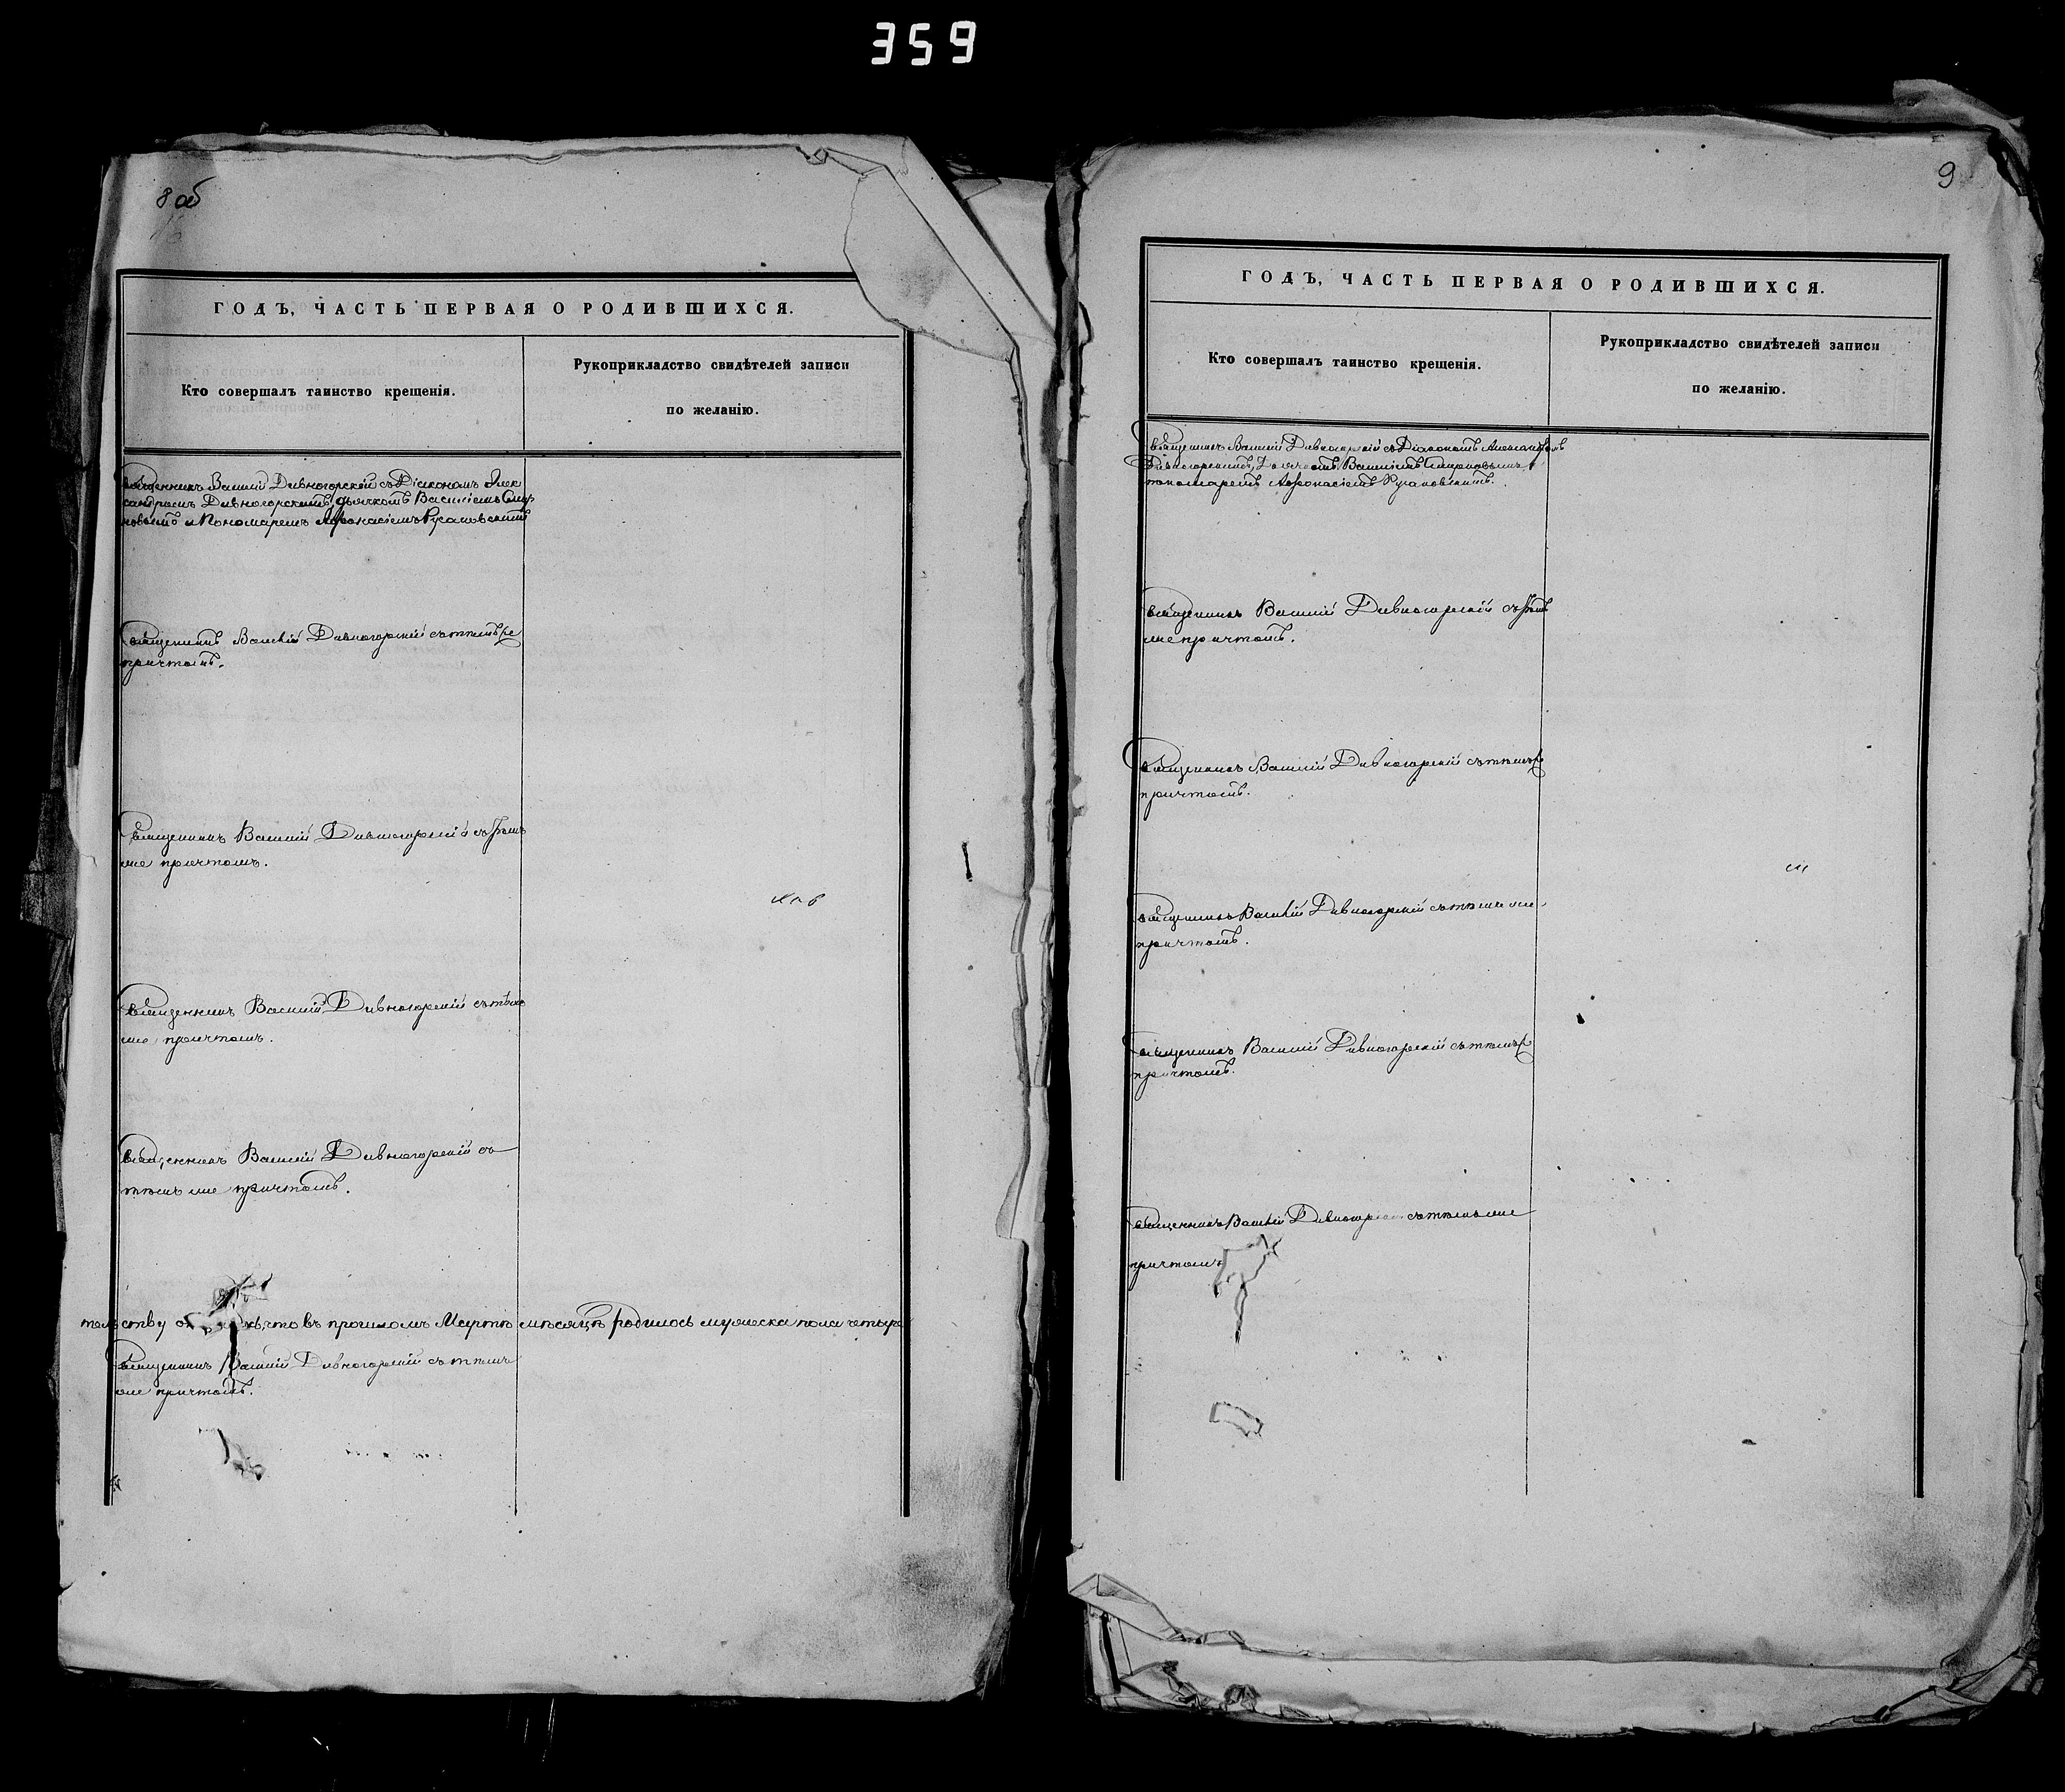 359
8 об
ГОДЪ, ЧАСТЬ ПЕРВАЯ О РОДИВШИХСЯ.
Кто совершалъ таинство крещенія.
Рукоприкладство свидѣтелей записи
по желанію.
Священникъ Василій Дивногорскій съ Діакономъ Алек
сандромъ Дивногорскимъ, дьячкомъ Василіемъ Смир
новымъ и Пономаремъ Афонасіемъ Русановскимъ
Священникъ Василій Дивногорскій съ тѣмъ же
причтомъ.
Священникъ Василій Дивногорскій съ тѣмъ
же причтомъ.
Священникъ Василій Дивногорскій съ тѣмъ
же причтомъ.
Священникъ Василій Дивногорскій съ
тѣмъ же причтомъ.
что въ прошломъ Мартѣ мѣсяцѣ родилось мужеска пола четыре
Священникъ Василій Дивногорскій съ тѣмъ
же причтомъ.
9
ГОДЪ, ЧАСТЬ ПЕРВАЯ О РОДИВШИХСЯ.
Кто совершалъ таинство крещенія.
Рукоприкладство свидѣтелей записи
по желанію.
Священникъ Василій Дивногорскій съ Діакономъ Александромъ
Дивногорскимъ, Дьячкомъ Василіемъ Смирновымъ и
пономаремъ Афонасіемъ Русановскимъ.
Священникъ Василій Дивногорскій съ тѣмъ
же причтомъ.
Священникъ Василій Дивногорскій съ тѣмъ же
причтомъ.
Священникъ Василій Дивногорскій съ тѣмъ же
причтомъ.
Священникъ Василій Дивногорскій съ тѣмъ же
причтомъ.
Священникъ Василій Дивногорскій съ тѣмъ же
причтомъ